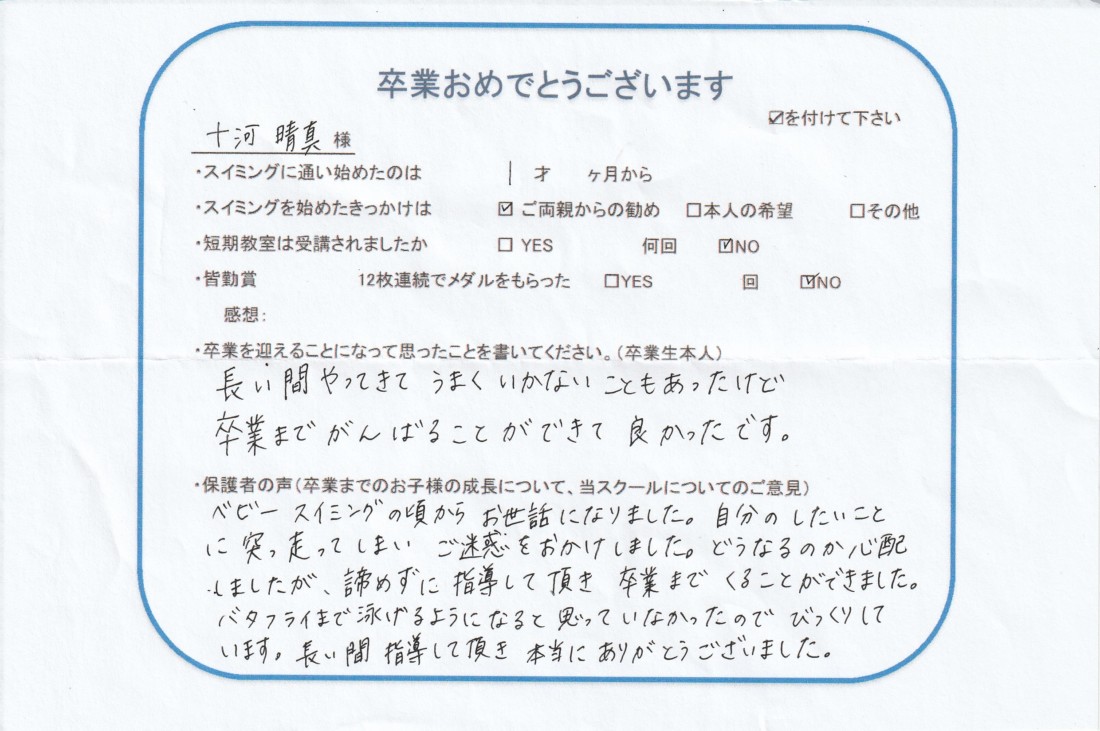 卒業おめでとうございます
☑を付けて下さい
十河 晴真 様
・スイミングに通い始めたのは 1 才 ヶ月から
・スイミングを始めたきっかけは ☑ ご両親からの勧め □本人の希望 □その他
・短期教室は受講されましたか □ YES 何回 ☑NO
・皆勤賞 12枚連続でメダルをもらった □YES 回 ☑NO
感想：
・卒業を迎えることになって思ったことを書いてください。（卒業生本人）
長い間やってきて うまくいかないこともあったけど
卒業まで がんばることができて 良かったです。
・保護者の声（卒業までのお子様の成長について、当スクールについてのご意見）
ベビースイミングの頃から お世話になりました。自分のしたいこと
に突っ走ってしまい ご迷惑をおかけしました。どうなるのか心配
しましたが、諦めずに指導して頂き 卒業まで くることができました。
バタフライまで泳げるようになると思っていなかったので びっくりして
います。長い間 指導して頂き 本当に ありがとうございました。